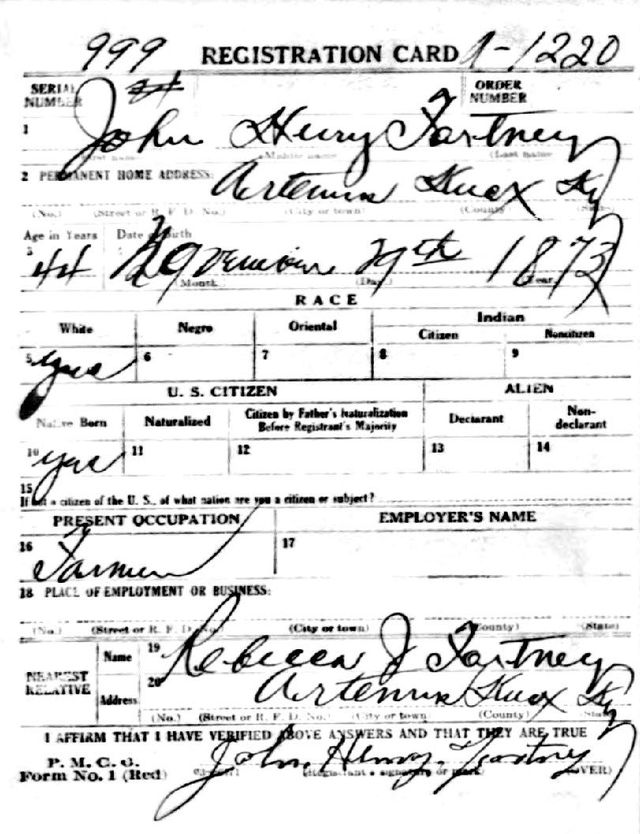 999 REGISTRATION CARD A-1220
SERIAL NUMBER ORDER NUMBER
1 John Henry Fortney
(First name) (Middle name) (Last name)
2 PERMANENT HOME ADDRESS: Artemus Knox Ky
(No.) (Street or R. F. D. No.) (City or town) (County) (State)
Age in Years Date of Birth
3 44 November 29th 1873
(Month) (Day) (Year)
RACE
White Negro Oriental Indian
Citizen Noncitizen
5 yes 6 7 8 9
U. S. CITIZEN ALIEN
Native Born Naturalized Citizen by Father's Naturalization Before Registrant's Majority Declarant Non-declarant
10 yes 11 12 13 14
15
If not a citizen of the U. S., of what nation are you a citizen or subject?
PRESENT OCCUPATION EMPLOYER'S NAME
16 Farmer 17
18 PLACE OF EMPLOYMENT OR BUSINESS:
(No.) (Street or R. F. D. No.) (City or town) (County) (State)
NEAREST RELATIVE Name 19 Rebecca J Fortney
Address 20 Artemus Knox Ky
(No.) (Street or R. F. D. No.) (City or town) (County) (State)
I AFFIRM THAT I HAVE VERIFIED ABOVE ANSWERS AND THAT THEY ARE TRUE
P. M. G. O.
Form No. 1 (Red) John Henry Fortney
(Registrant's signature or mark) (OVER)